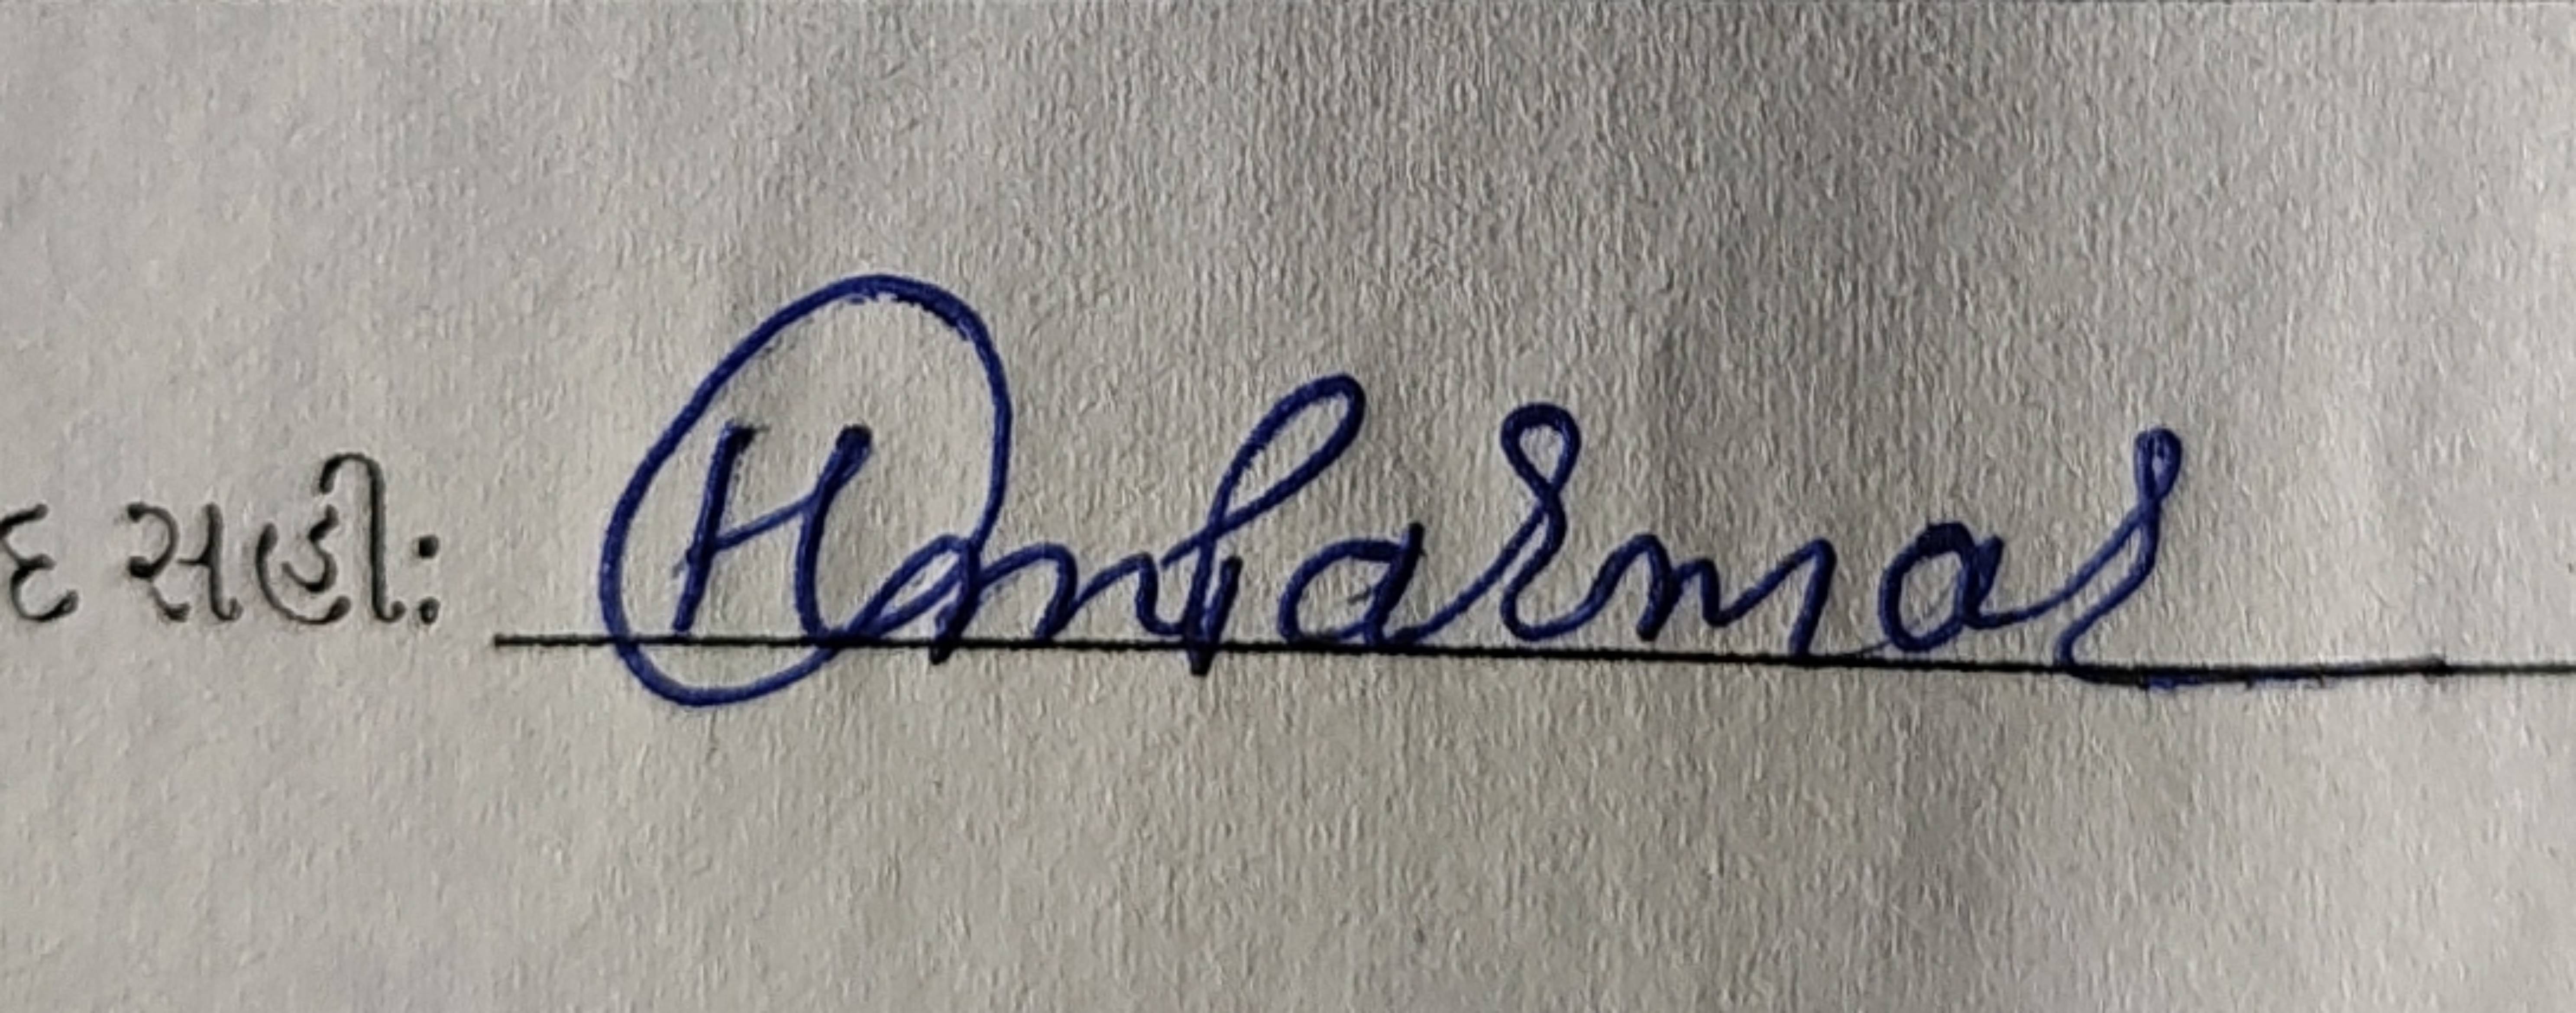 દ સહી: HmParmar